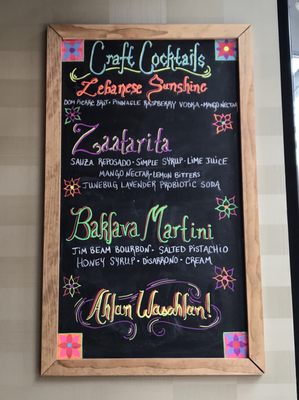 Craft Cocktails
Lebanese Sunshine
DOM PIERRE BRUT • PINNACLE RASPBERRY VODKA • MANGO NECTAR
Zaatarita
SAUZA REPOSADO • SIMPLE SYRUP • LIME JUICE
MANGO NECTAR • LEMON BITTERS
JUNEBUG LAVENDER PROBIOTIC SODA
Baklava Martini
JIM BEAM BOURBON • SALTED PISTACHIO
HONEY SYRUP • DISARRONO • CREAM
Ahlan Wasahlan!